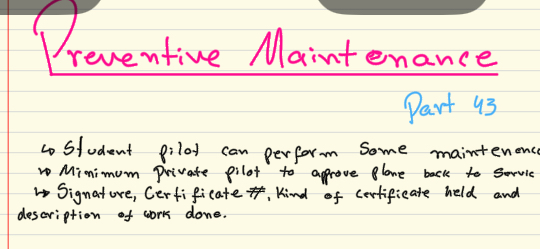 Preventive Maintenance
Part 43
↳ Student pilot can perform some maintenenc
↳ Minimum Private pilot to approve plane back to Servic
↳ Signature, Certificate #, Kind of certificate held and
description of work done.